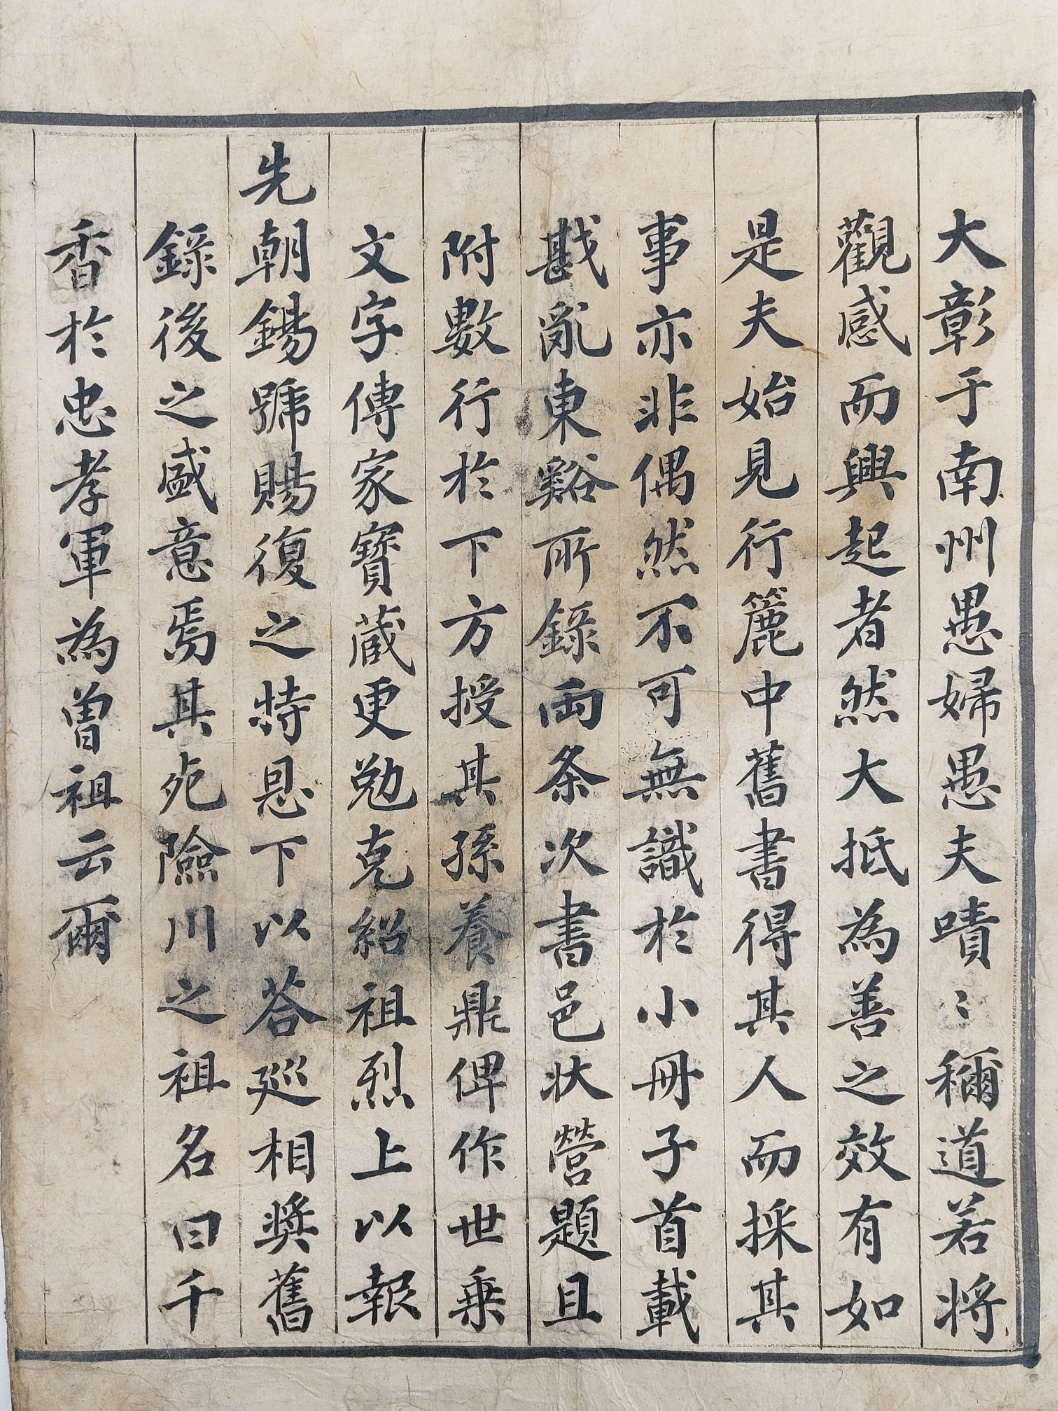 大彰于南州愚婦愚夫嘖〻稱道若將
觀感而興起者然大抵為善之效有如
是夫始見行簏中舊書得其人而採其
事亦非偶然不可無識於小冊子首載
戡亂東谿所錄兩条次書邑狀營題且
附數行於下方授其孫養鼎俾作世乘
文字傳家寶蔵更勉克紹祖烈上以報
先朝錫號賜復之特恩下以荅廵相奬舊
錄後之盛意焉其死險川之祖名曰千
香於忠孝軍為曽祖云爾